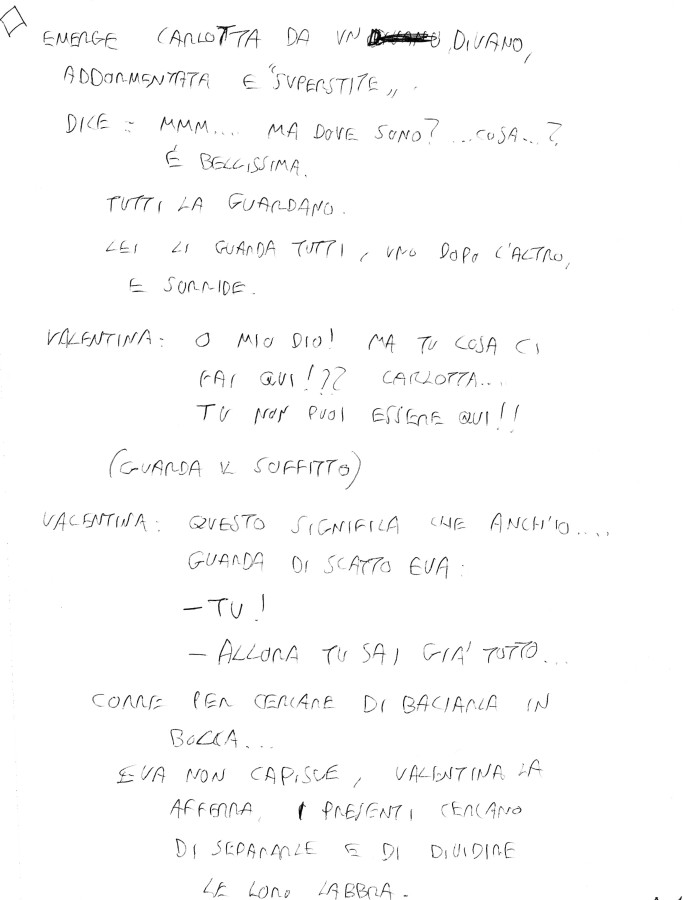 EMERGE CARLOTTA DA UN DIVANO,
ADDORMENTATA E "SUPERSTITE„.
DICE: MMM.... MA DOVE SONO? ...COSA...?
É BELLISSIMA.
TUTTI LA GUARDANO.
LEI LI GUARDA TUTTI, UNO DOPO L'ALTRO,
E SORRIDE.
VALENTINA: O MIO DIO! MA TU COSA CI
FAI QUI!?? CARLOTTA...
TU NON PUOI ESSERE QUI!!
(GUARDA IL SOFFITTO)
VALENTINA: QUESTO SIGNIFICA CHE ANCH'IO....
GUARDA DI SCATTO EVA:
— TU!
— ALLORA TU SAI GIA' TUTTO...
CORRE PER CERCARE DI BACIARLA IN
BOCCA...
EVA NON CAPISCE, VALENTINA LA
AFFERRA, I PRESENTI CERCANO
DI SEPARARLE E DI DIVIDERE
LE LORO LABBRA.